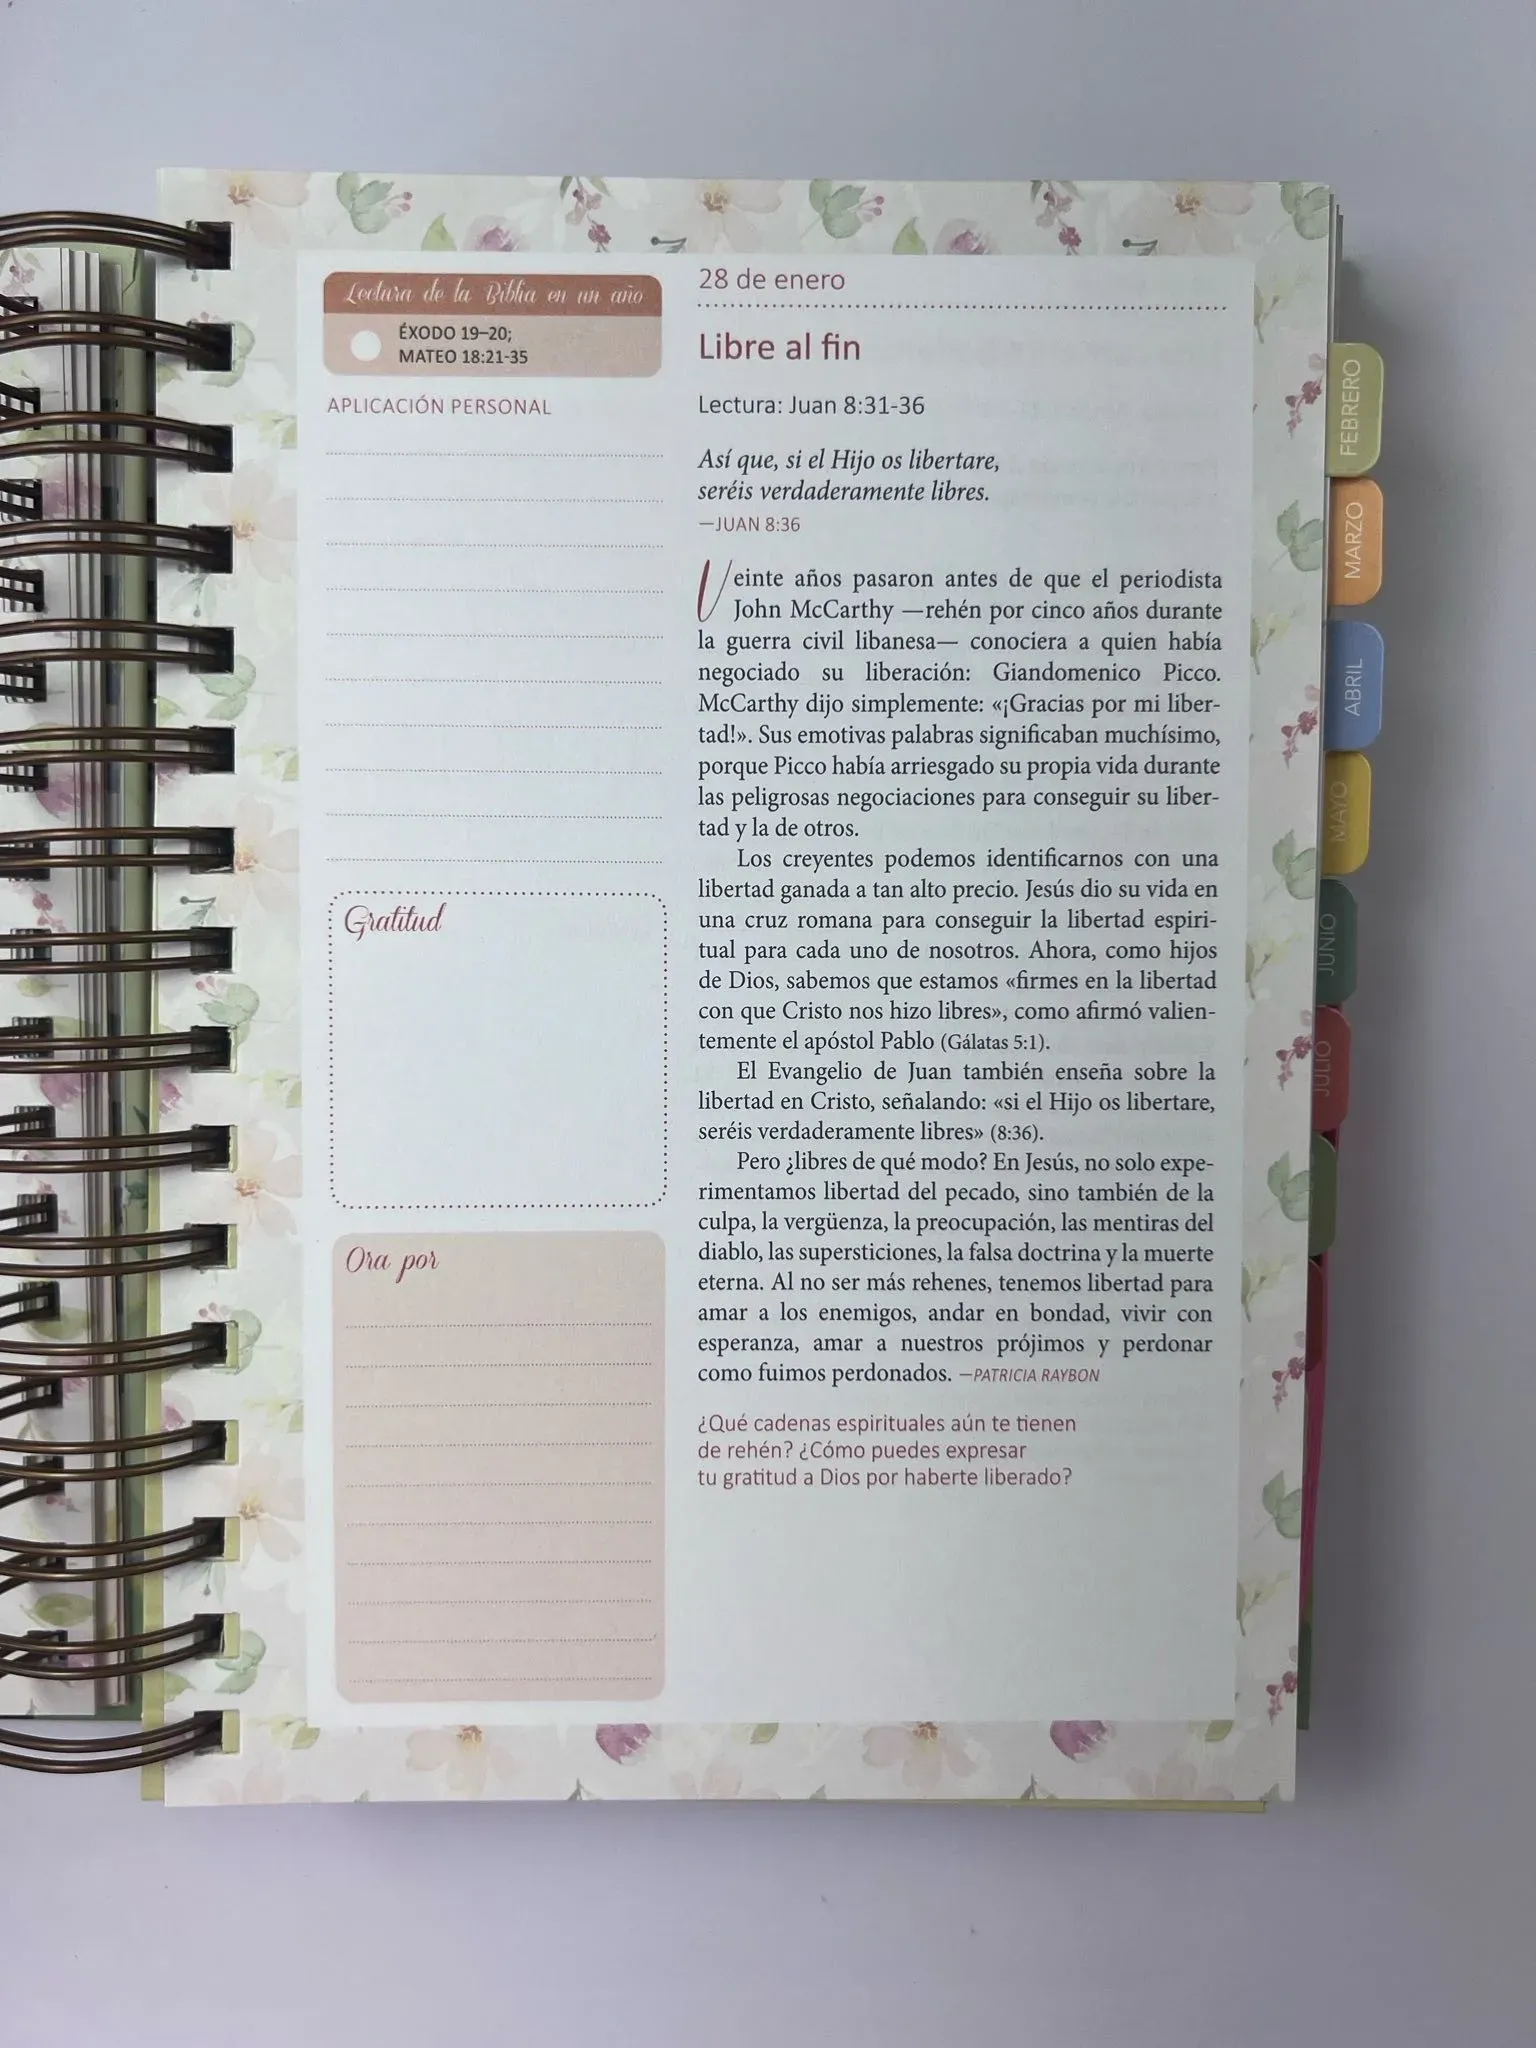 Lectura de la Biblia en un año
ÉXODO 19–20;
MATEO 18:21-35
APLICACIÓN PERSONAL
Gratitud
Ora por
28 de enero
Libre al fin
Lectura: Juan 8:31-36
Así que, si el Hijo os libertare,
seréis verdaderamente libres.
—JUAN 8:36
Veinte años pasaron antes de que el periodista
John McCarthy —rehén por cinco años durante
la guerra civil libanesa— conociera a quien había
negociado su liberación: Giandomenico Picco.
McCarthy dijo simplemente: «¡Gracias por mi liber-
tad!». Sus emotivas palabras significaban muchísimo,
porque Picco había arriesgado su propia vida durante
las peligrosas negociaciones para conseguir su liber-
tad y la de otros.
Los creyentes podemos identificarnos con una
libertad ganada a tan alto precio. Jesús dio su vida en
una cruz romana para conseguir la libertad espiri-
tual para cada uno de nosotros. Ahora, como hijos
de Dios, sabemos que estamos «firmes en la libertad
con que Cristo nos hizo libres», como afirmó valien-
temente el apóstol Pablo (Gálatas 5:1).
El Evangelio de Juan también enseña sobre la
libertad en Cristo, señalando: «si el Hijo os libertare,
seréis verdaderamente libres» (8:36).
Pero ¿libres de qué modo? En Jesús, no solo expe-
rimentamos libertad del pecado, sino también de la
culpa, la vergüenza, la preocupación, las mentiras del
diablo, las supersticiones, la falsa doctrina y la muerte
eterna. Al no ser más rehenes, tenemos libertad para
amar a los enemigos, andar en bondad, vivir con
esperanza, amar a nuestros prójimos y perdonar
como fuimos perdonados. —PATRICIA RAYBON
¿Qué cadenas espirituales aún te tienen
de rehén? ¿Cómo puedes expresar
tu gratitud a Dios por haberte liberado?
FEBRERO
MARZO
ABRIL
MAYO
JUNIO
JULIO